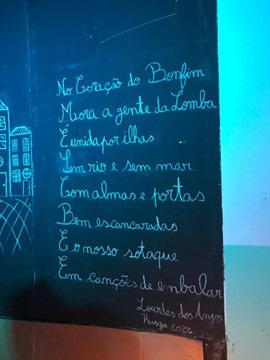 No Coração do Bonfim
Mora a gente da Lomba
É unida por ilhas
Sem rio e sem mar
Com almas e portas
Bem escancaradas
E o nosso sotaque
Em canções de embalar
Lourdes dos Anjos
Rusga 2022